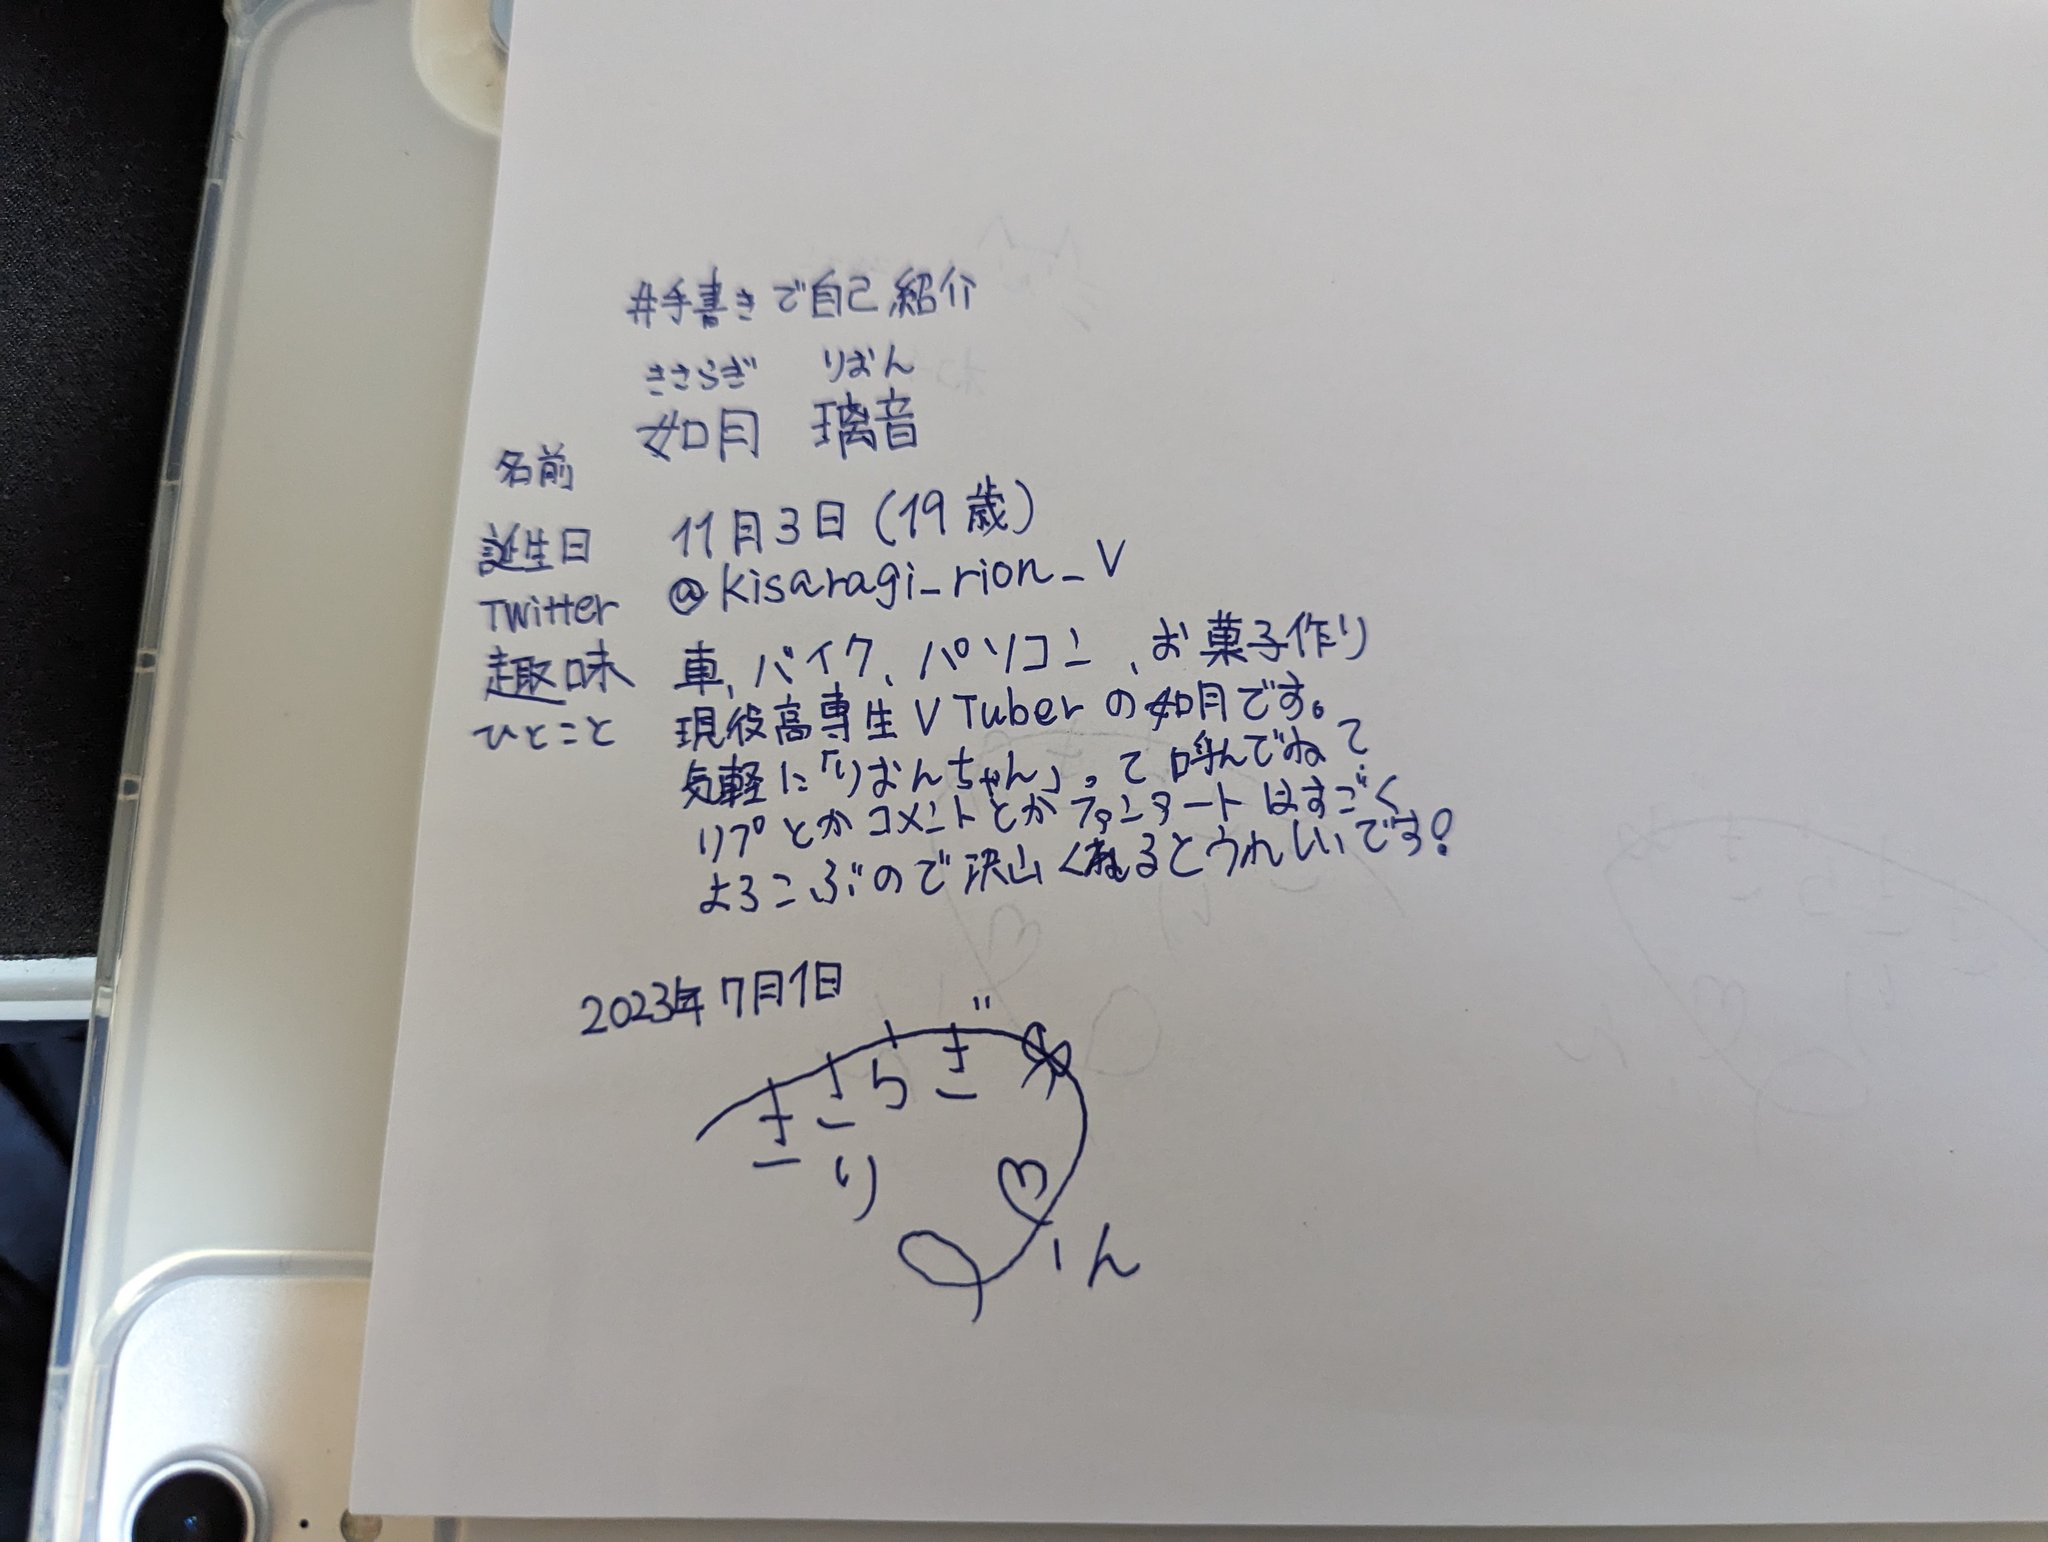 #手書きで自己紹介
きさらぎ りおん
名前 如月 璃音
誕生日 11月3日(19歳)
Twitter @kisaragi_rion_V
趣味 車、バイク、パソコン、お菓子作り
ひとこと 現役高専生VTuberの如月です。
気軽に「りおんちゃん」って呼んでね?
リプとかコメントとかファンアートはすごく
よろこぶので沢山くれるとうれしいです!
2023年7月1日
きさらぎ
りおん